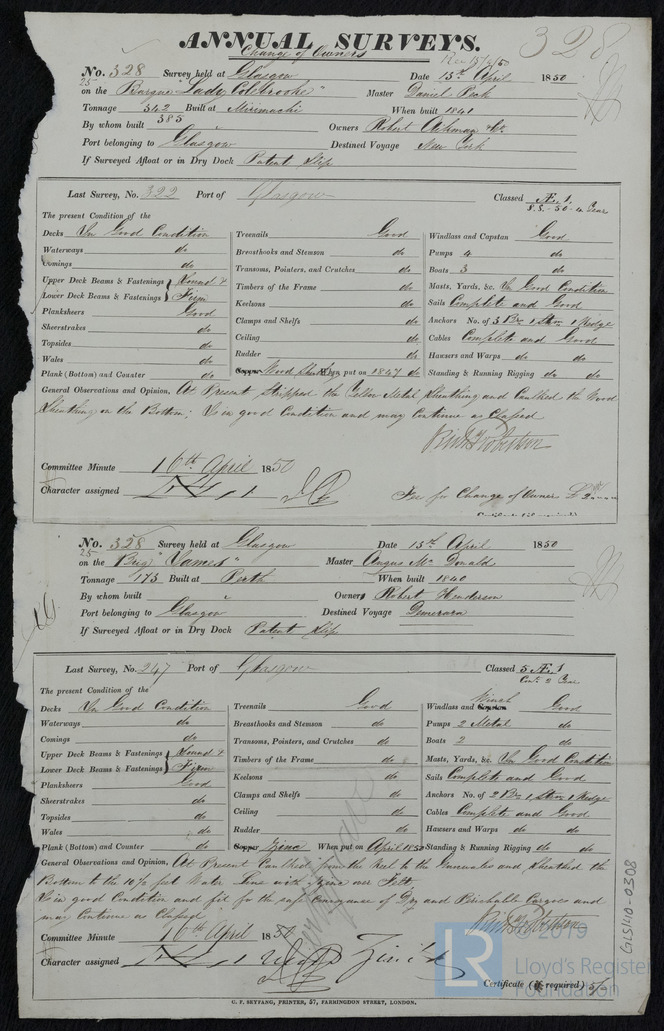 ANNUAL SURVEYS.
Change of Owners
328
No. 328 Survey held at Glasgow Date 15th April 1850
25
on the Barque "Lady Colebrooke" Master Daniel Peck
Tonnage 342 Built at Mirimachi When built 1841
385
By whom built " Owners Robert Aikman & Co
Port belonging to Glasgow Destined Voyage New York
If Surveyed Afloat or in Dry Dock Patent Slip
Last Survey, No. 322 Port of Glasgow Classed Æ 1
The present Condition of the
Decks In Good Condition Treenails Good Windlass and Capstan Good
Waterways do Breasthooks and Stemson do Pumps 4 do
Comings do Transoms, Pointers, and Crutches do Boats 3 do
Upper Deck Beams & Fastenings Sound & Timbers of the Frame do Masts, Yards, &c. In Good Condition
Lower Deck Beams & Fastenings Firm Keelsons do Sails Complete and Good
Planksheers Good Clamps and Shelfs do Anchors No. of 3 Brs 1 Strm 1 Kedge
Sheerstrakes do Ceiling do Cables Complete and Good
Topsides do Rudder do Hawsers and Warps do do
Wales do Copper Wood Sheathing When put on 1847 do Standing & Running Rigging do do
Plank (Bottom) and Counter do
General Observations and Opinion, At Present Stripped the Yellow Metal Sheathing and Caulked the Wood
Sheathing on the Bottom; Is in good Condition and may Continue as Classed
Committee Minute 16th April 1850
Character assigned Æ 1
Fee for Change of Owner £2
No. 328 Survey held at Glasgow Date 15th April 1850
25
on the Brig "James" Master Angus McDonald
Tonnage 173 Built at Perth When built 1840
By whom built " Owners Robert Henderson
Port belonging to Glasgow Destined Voyage Demerara
If Surveyed Afloat or in Dry Dock Patent Slip
Last Survey, No. 247 Port of Glasgow Classed 5 Æ 1
Cont. 2 Year
The present Condition of the
Winch
Decks In Good Condition Treenails Good Windlass and Capstan Good
Waterways do Breasthooks and Stemson do Pumps 2 Metal do
Comings do Transoms, Pointers, and Crutches do Boats 2 do
Upper Deck Beams & Fastenings Sound & Timbers of the Frame do Masts, Yards, &c. In Good Condition
Lower Deck Beams & Fastenings Firm Keelsons do Sails Complete and Good
Planksheers Good Clamps and Shelfs do Anchors No. of 2 Brs 1 Strm 1 Kedge
Sheerstrakes do Ceiling do Cables Complete and Good
Topsides do Rudder do Hawsers and Warps do do
Wales do Copper Zinc When put on April 1850 Standing & Running Rigging do do
Plank (Bottom) and Counter do
General Observations and Opinion, At Present Caulked from the Keel to the Gunwales and Sheathed the
Bottom to the 10½ feet Water Line with Zinc over Felt
Is in good Condition and fit for the safe Conveyance of Dry and Perishable Cargoes and
may Continue as Classed
Committee Minute 16th April 1850
Character assigned Æ 1 Zinc'd
Certificate (if required) 5/-
C. F. SEYFANG, PRINTER, 57, FARRINGDON STREET, LONDON.
GLS1410-0308
LR © 2019
Lloyd's Register
Foundation